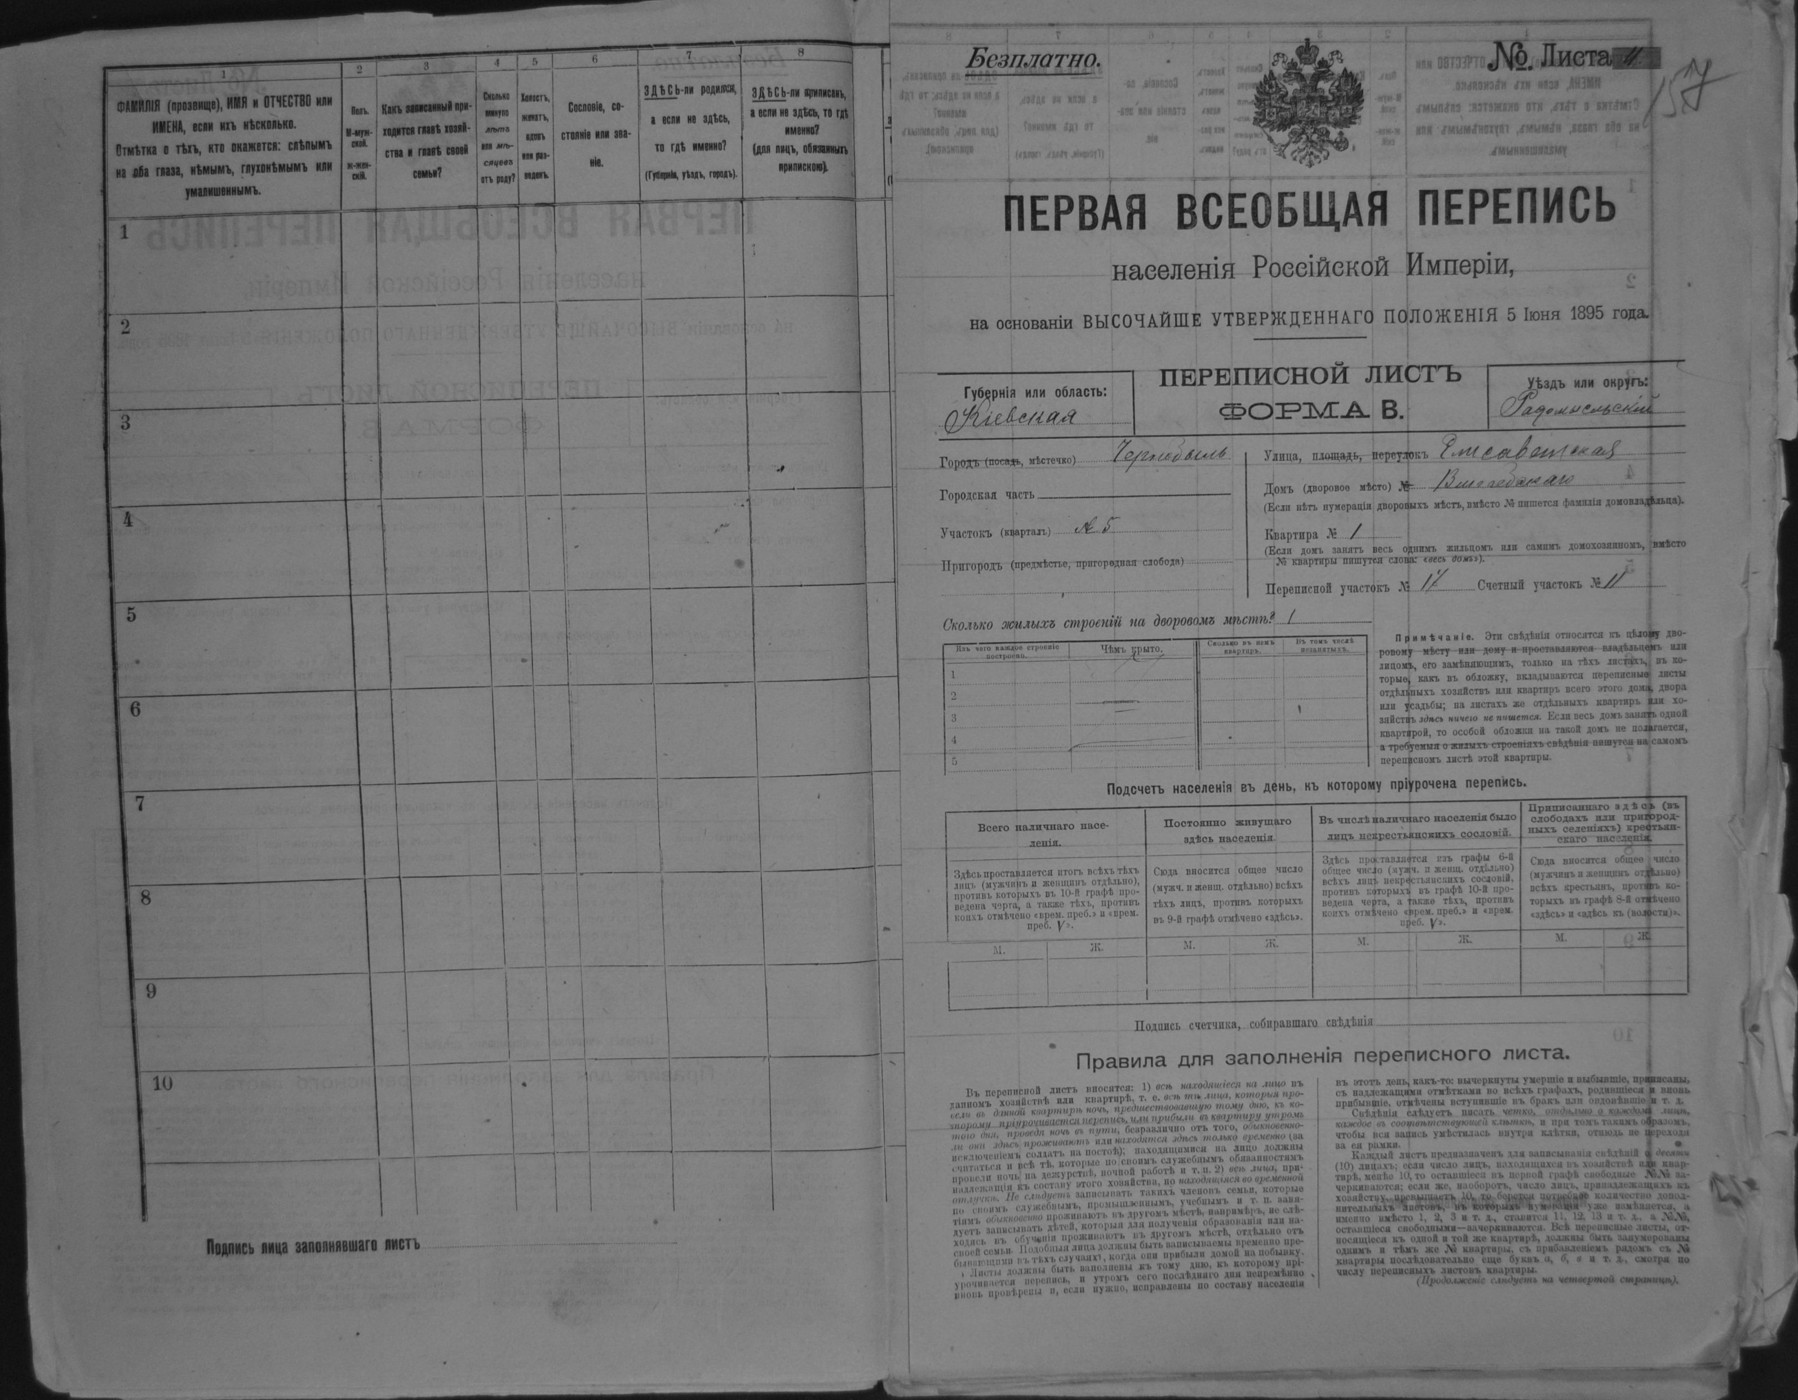 1 2 3 4 5 6 7 8
ФАМИЛІЯ (прозвище), ИМЯ и ОТЧЕСТВО или
ИМЕНА, если ихъ нѣсколько.
Отмѣтка о тѣхъ, кто окажется: слѣпымъ
на оба глаза, нѣмымъ, глухонѣмымъ или
умалишеннымъ.
Полъ.
М-муж-
ской.
Ж-жен-
скій.
Какъ записанный при-
ходится главѣ хозяй-
ства и главѣ своей
семьи?
Сколько
минуло
лѣтъ
или мѣ-
сяцевъ
отъ роду?
Холостъ,
женатъ,
вдовъ
или раз-
веденъ.
Сословіе, со-
стояніе или зва-
ніе.
ЗДѢСЬ-ли родился,
а если не здѣсь,
то гдѣ именно?
(Губернія, уѣздъ, городъ).
ЗДѢСЬ-ли приписанъ,
а если не здѣсь, то гдѣ
именно?
(для лицъ, обязанныхъ
припискою).
1
2
3
4
5
6
7
8
9
10
Подпись лица заполнявшаго листъ
Безплатно.
№. Листа 11
157
ПЕРВАЯ ВСЕОБЩАЯ ПЕРЕПИСЬ
населенія Россійской Имперіи,
на основаніи ВЫСОЧАЙШЕ УТВЕРЖДЕННАГО ПОЛОЖЕНІЯ 5 Іюня 1895 года.
Губернія или область:
Кіевская
ПЕРЕПИСНОЙ ЛИСТЪ
ФОРМА В.
Уѣздъ или округъ:
Радомысльскій
Городъ (посадъ, мѣстечко) Чернобыль
Городская часть
Участокъ (кварталъ) № 5
Пригородъ (предмѣстье, пригородная слобода)
Улица, площадь, переулокъ Елисаветская
Домъ (дворовое мѣсто) №
(Если нѣтъ нумераціи дворовыхъ мѣстъ, вмѣсто № пишется фамилія домовладѣльца).
Квартира № 1
(Если домъ занятъ весь однимъ жильцомъ или самимъ домохозяиномъ, вмѣсто
№ квартиры пишутся слова: «весь домъ»).
Переписной участокъ № 17 Счетный участокъ № 11
Сколько жилыхъ строеній на дворовомъ мѣстѣ? 1
Изъ чего каждое строеніе
построено.
Чѣмъ крыто.
Сколько въ немъ
квартиръ.
Въ томъ числѣ
незанятыхъ.
1
2
3
4
5
Примѣчаніе. Эти свѣдѣнія относятся къ цѣлому дво-
ровому мѣсту или дому и проставляются владѣльцемъ или
лицомъ, его замѣняющимъ, только на тѣхъ листахъ, въ ко-
торые, какъ въ обложку, вкладываются переписные листы
отдѣльныхъ хозяйствъ или квартиръ всего этого дома, двора
или усадьбы; на листахъ же отдѣльныхъ квартиръ или хо-
зяйствъ здѣсь ничего не пишется. Если весь домъ занятъ одной
квартирой, то особой обложки на такой домъ не полагается,
а требуемыя о жилыхъ строеніяхъ свѣдѣнія пишутся на самомъ
переписномъ листѣ этой квартиры.
Подсчетъ населенія въ день, къ которому пріурочена перепись.
Всего наличнаго насе-
ленія.
Здѣсь проставляется итогъ всѣхъ тѣхъ
лицъ (мужчинъ и женщинъ отдѣльно),
противъ которыхъ въ 10-й графѣ про-
ведена черта, а также тѣхъ, противъ
коихъ отмѣчено «врем. преб.» и «врем.
преб. V».
Постоянно живущаго
здѣсь населенія.
Сюда вносится общее число
(мужч. и женщ. отдѣльно) всѣхъ
тѣхъ лицъ, противъ которыхъ
въ 9-й графѣ отмѣчено «здѣсь».
Въ числѣ наличнаго населенія было
лицъ некрестьянскихъ сословій.
Здѣсь проставляется изъ графы 6-й
общее число (мужч. и женщ. отдѣльно)
всѣхъ лицъ некрестьянскихъ сословій,
противъ которыхъ въ графѣ 10-й про-
ведена черта, а также тѣхъ, противъ
коихъ отмѣчено «врем. преб.» и «врем.
преб. V».
Приписаннаго здѣсь (въ
слободахъ или пригород-
ныхъ селеніяхъ) крестьян-
скаго населенія.
Сюда вносится общее число
(мужчинъ и женщинъ отдѣльно)
всѣхъ крестьянъ, противъ ко-
торыхъ въ графѣ 8-й отмѣчено
«здѣсь» и «здѣсь къ (волости)».
М. Ж. М. Ж. М. Ж. М. Ж.
Подпись счетчика, собиравшаго свѣдѣнія
Правила для заполненія переписного листа.
Въ переписной листъ вносятся: 1) всѣ находящіеся на лицо въ
данномъ хозяйствѣ или квартирѣ, т. е. всѣ тѣ лица, которыя про-
вели въ данной квартирѣ ночь, предшествовавшую тому дню, къ ко-
торому пріурочивается перепись, или прибыли въ квартиру утромъ
того дня, проведя ночь въ пути, безразлично отъ того, обыкновенно-
ли они здѣсь проживаютъ или находятся здѣсь только временно (за
исключеніемъ солдатъ на постоѣ); находящимися на лицо должны
считаться и всѣ тѣ, которые по своимъ служебнымъ обязанностямъ
провели ночь на дежурствѣ, ночной работѣ и т. п. 2) всѣ лица, при-
надлежащія къ составу этого хозяйства, но находящіяся во временной
отлучкѣ. Не слѣдуетъ записывать такихъ членовъ семьи, которые
по своимъ служебнымъ, промышленнымъ, учебнымъ и т. п. заня-
тіямъ обыкновенно проживаютъ въ другомъ мѣстѣ, напримѣръ, не слѣ-
дуетъ записывать дѣтей, которыя для полученія образованія или на-
ходясь въ обученіи проживаютъ въ другомъ мѣстѣ, отдѣльно отъ
своей семьи. Подобныя лица должны быть записываемы временно пре-
бывающими въ тѣхъ случаяхъ, когда они прибыли домой на побывку.
Листы должны быть заполнены къ тому дню, къ которому прі-
урочивается перепись, и утромъ сего послѣдняго дня непремѣнно
вновь провѣрены и, если нужно, исправлены по составу населенія
въ этотъ день, какъ-то: вычеркнуты умершіе и выбывшіе, приписаны,
съ надлежащими отмѣтками во всѣхъ графахъ, родившіеся и вновь
прибывшіе, отмѣчены вступившіе въ бракъ или овдовѣвшіе и т. д.
Свѣдѣнія слѣдуетъ писать четко, отдѣльно о каждомъ лицѣ,
каждое въ соотвѣтствующей клѣткѣ, и при томъ такимъ образомъ,
чтобы вся запись умѣстилась внутри клѣтки, отнюдь не переходя
за ея рамки.
Каждый листъ предназначенъ для записыванія свѣдѣній о десяти
(10) лицахъ; если число лицъ, находящихся въ хозяйствѣ или квар-
тирѣ, менѣе 10, то оставшіеся въ первой графѣ свободные №№ за-
черкиваются; если же, наоборотъ, число лицъ, принадлежащихъ къ
хозяйству, превышаетъ 10, то берется потребное количество допол-
нительныхъ листовъ, въ которыхъ нумерація уже измѣняется, а
именно вмѣсто 1, 2, 3 и т. д., ставится 11, 12, 13 и т. д., а №№,
оставшіеся свободными—зачеркиваются. Всѣ переписные листы, от-
носящіеся къ одной и той же квартирѣ, должны быть занумерованы
однимъ и тѣмъ же № квартиры, съ прибавленіемъ рядомъ съ №
квартиры послѣдовательно еще буквъ а, б, в и т. д., смотря по
числу переписныхъ листовъ квартиры.
(Продолженіе слѣдуетъ на четвертой страницѣ).